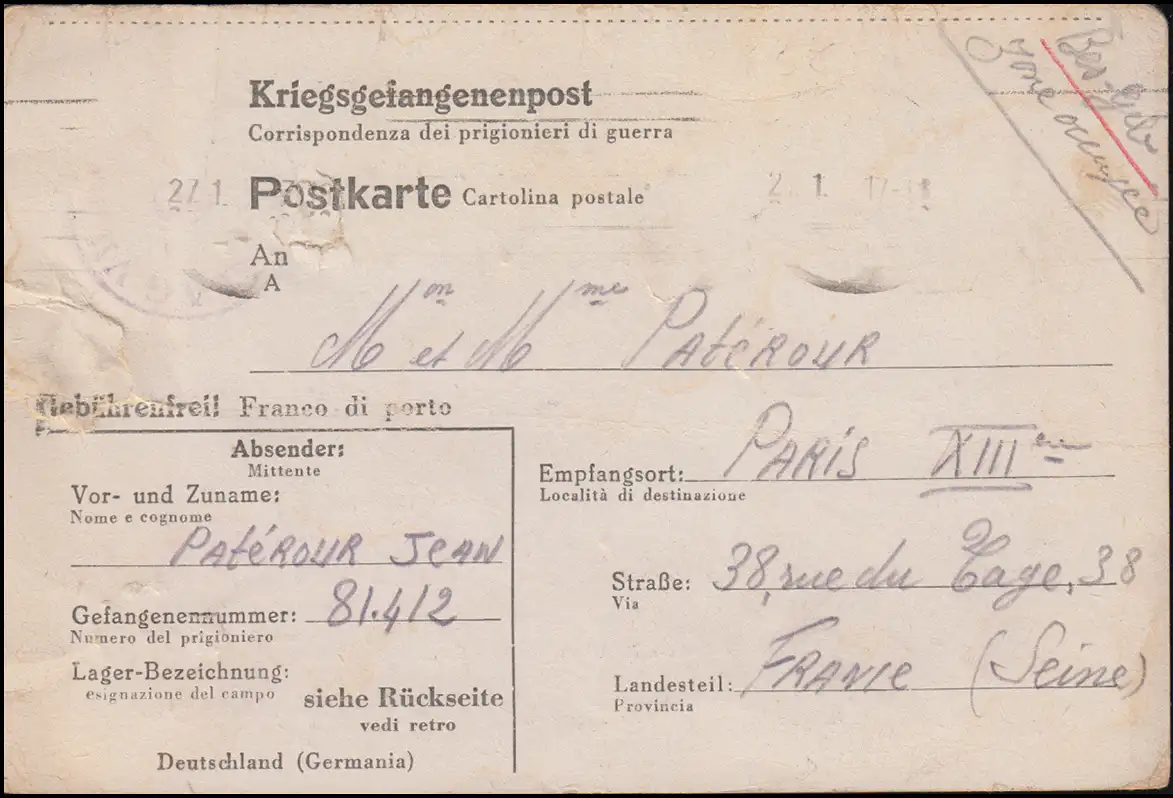 Kriegsgefangenenpost
Corrispondenza dei prigionieri di guerra
zone occupée
27.1.
Postkarte Cartolina postale
2 .1. 17-18
An
A
Mon et Mme PatéROUR
Gebührenfrei! Franco di porto
Absender:
Mittente
Vor- und Zuname:
Nome e cognome
PatéROUR JEAN
Gefangenennummer: 81.412
Numero del prigioniero
Lager-Bezeichnung:
esignazione del campo
siehe Rückseite
vedi retro
Deutschland (Germania)
Empfangsort: PARIS XIIIem
Località di destinazione
Straße: 38, rue du Tage, 38
Via
Landesteil: FRANCE (Seine)
Provincia